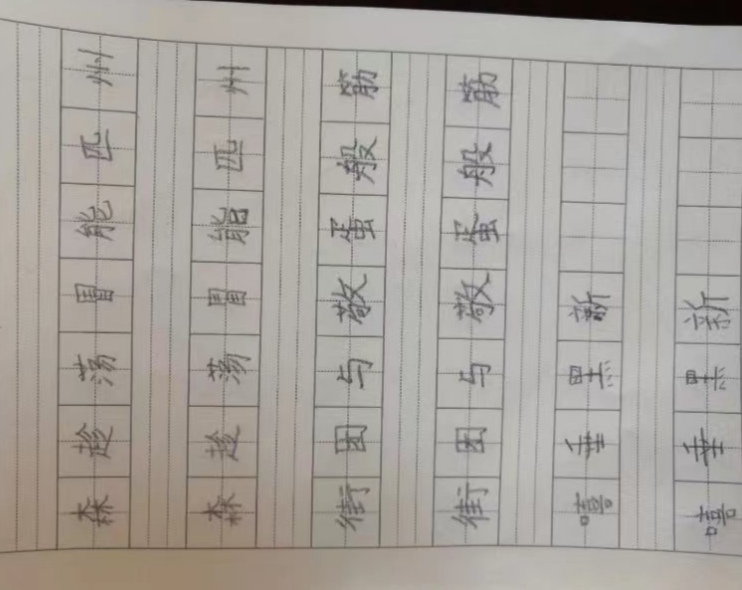 森趁荡冒能匹州
森趁荡冒能匹州
街困与敬蛋般筋
街困与敬蛋般筋
嘻幸黑新
嘻幸黑新